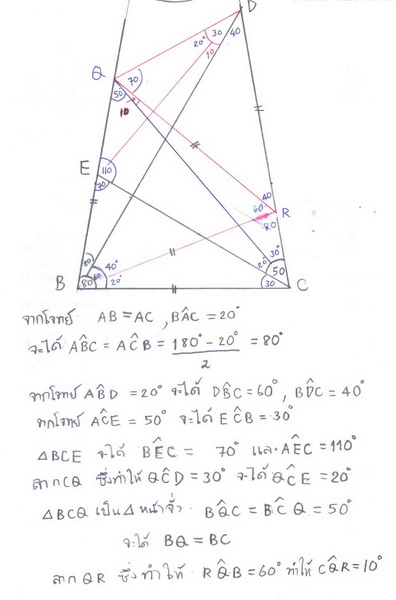 D
20° 30 40
10
Q 70
50°
10
E 110
70
40
60 R
80
20 40° 30°
60 20° 20° 50
B 80 30 C
จากโจทย์ AB = AC , BÂC = 20°
จะได้ AB̂C = AĈB = 180° - 20° = 80°
2
จากโจทย์ AB̂D = 20° จะได้ DB̂C = 60° , BD̂C = 40°
จากโจทย์ AĈE = 50° จะได้ EĈB = 30°
△BCE จะได้ BÊC = 70° และ AÊC = 110°
ลาก CQ ซึ่งทำให้ QĈD = 30° จะได้ QĈE = 20°
△BCQ เป็น △ หน้าจั่ว BQ̂C = BĈQ = 50°
จะได้ BQ = BC
ลาก QR ซึ่งทำให้ RQ̂B = 60° ทำให้ CQ̂R = 10°